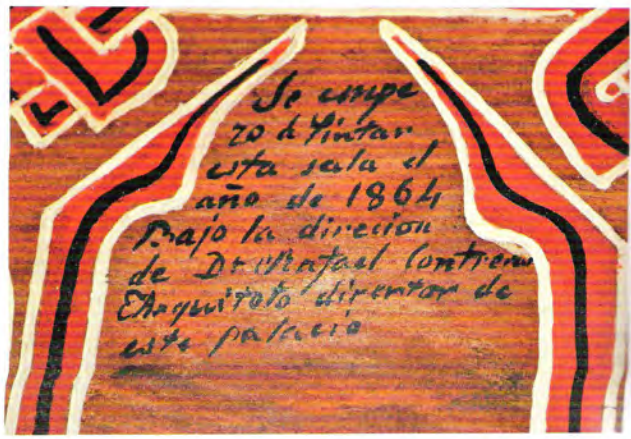 Se empe
zo á Pintar
esta sala el
año de 1864
Bajo la direcion
de Dn Rafael Contreras
Arquitoto direntor de
este palacio